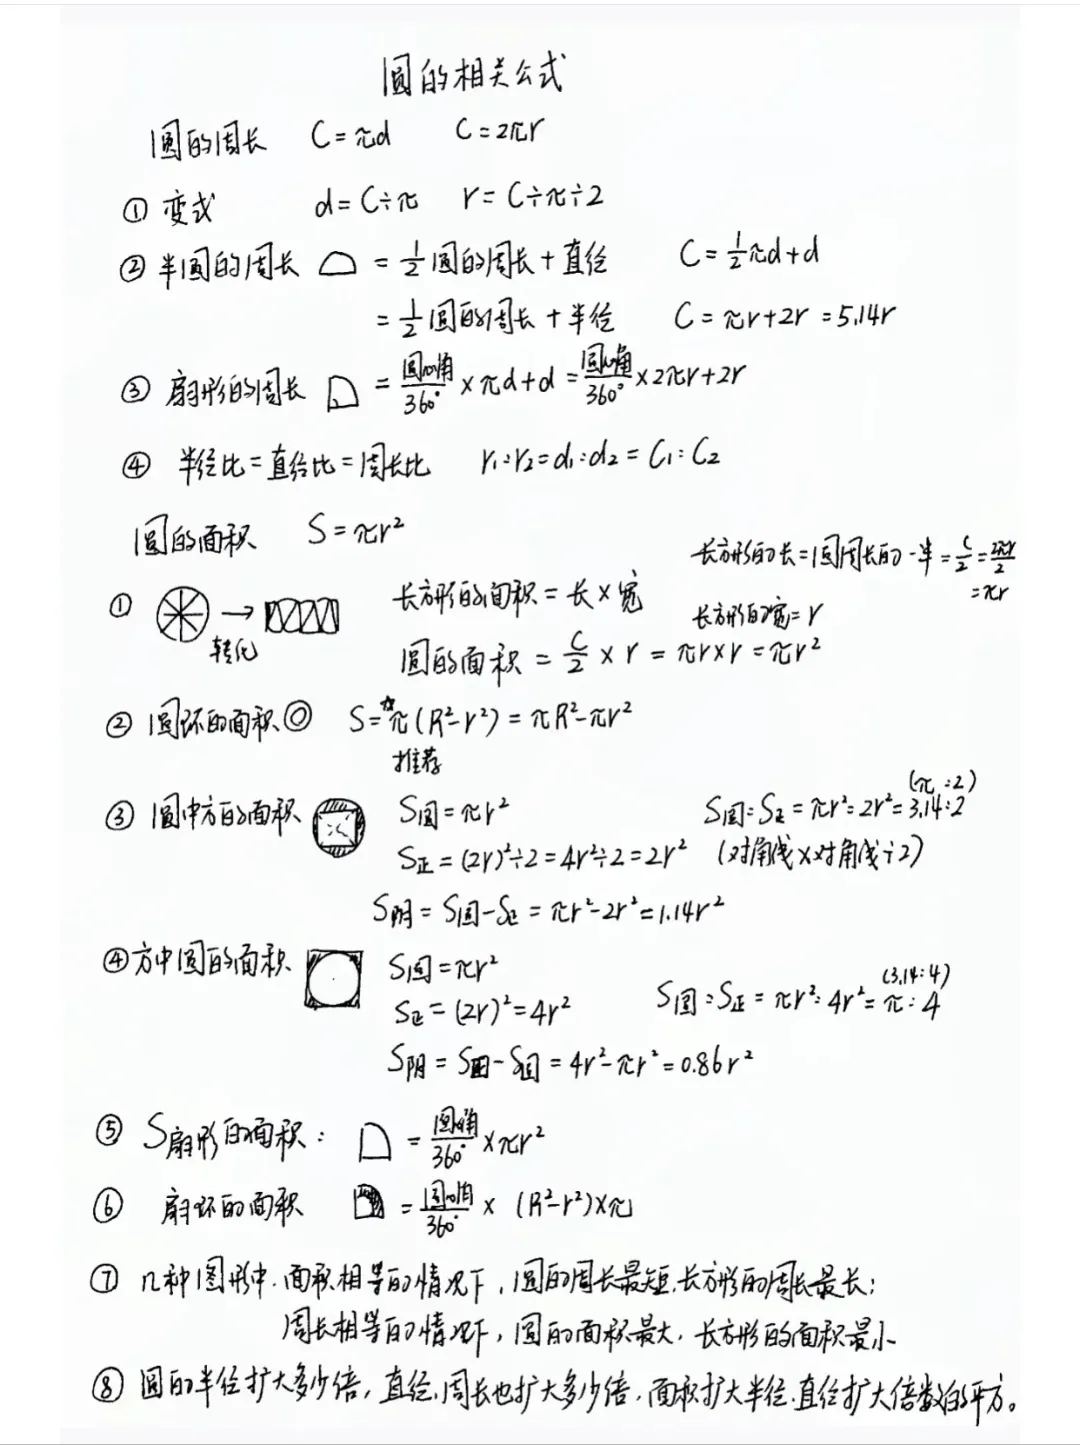 圆的相关公式
圆的周长 C=πd C=2πr
① 变式 d=C÷π r=C÷π÷2
② 半圆的周长 =1/2圆的周长+直径 C=1/2πd+d
=1/2圆的周长+半径 C=πr+2r=5.14r
③ 扇形的周长 =圆心角/360°×πd+d=圆心角/360°×2πr+2r
④ 半径比=直径比=周长比 r₁:r₂=d₁:d₂=C₁:C₂
圆的面积 S=πr²
长方形的长=圆周长的一半=C/2=2πr/2
=πr
① 转化 长方形的面积=长×宽
长方形的宽=r
圆的面积=C/2×r=πr×r=πr²
② 圆环的面积 S=☆π(R²-r²)=πR²-πr²
推荐
③ 圆中方的面积 S圆=πr² S圆:S正=πr²:2r²=3.14:2
(π:2)
S正=(2r)²÷2=4r²÷2=2r² (对角线×对角线÷2)
S阴=S圆-S正=πr²-2r²=1.14r²
④ 方中圆的面积 S圆=πr²
(3.14:4)
S正=(2r)²=4r² S圆:S正=πr²:4r²=π:4
S阴=S-S圆=4r²-πr²=0.86r²
⑤ S扇形的面积: =圆心角/360°×πr²
⑥ 扇环的面积 =圆心角/360°×(R²-r²)×π
⑦ 几种图形中.面积相等的情况下,圆的周长最短.长方形的周长最长;
周长相等的情况下,圆的面积最大.长方形的面积最小
⑧ 圆的半径扩大多少倍,直径.周长也扩大多少倍.面积扩大半径.直径扩大倍数的平方。